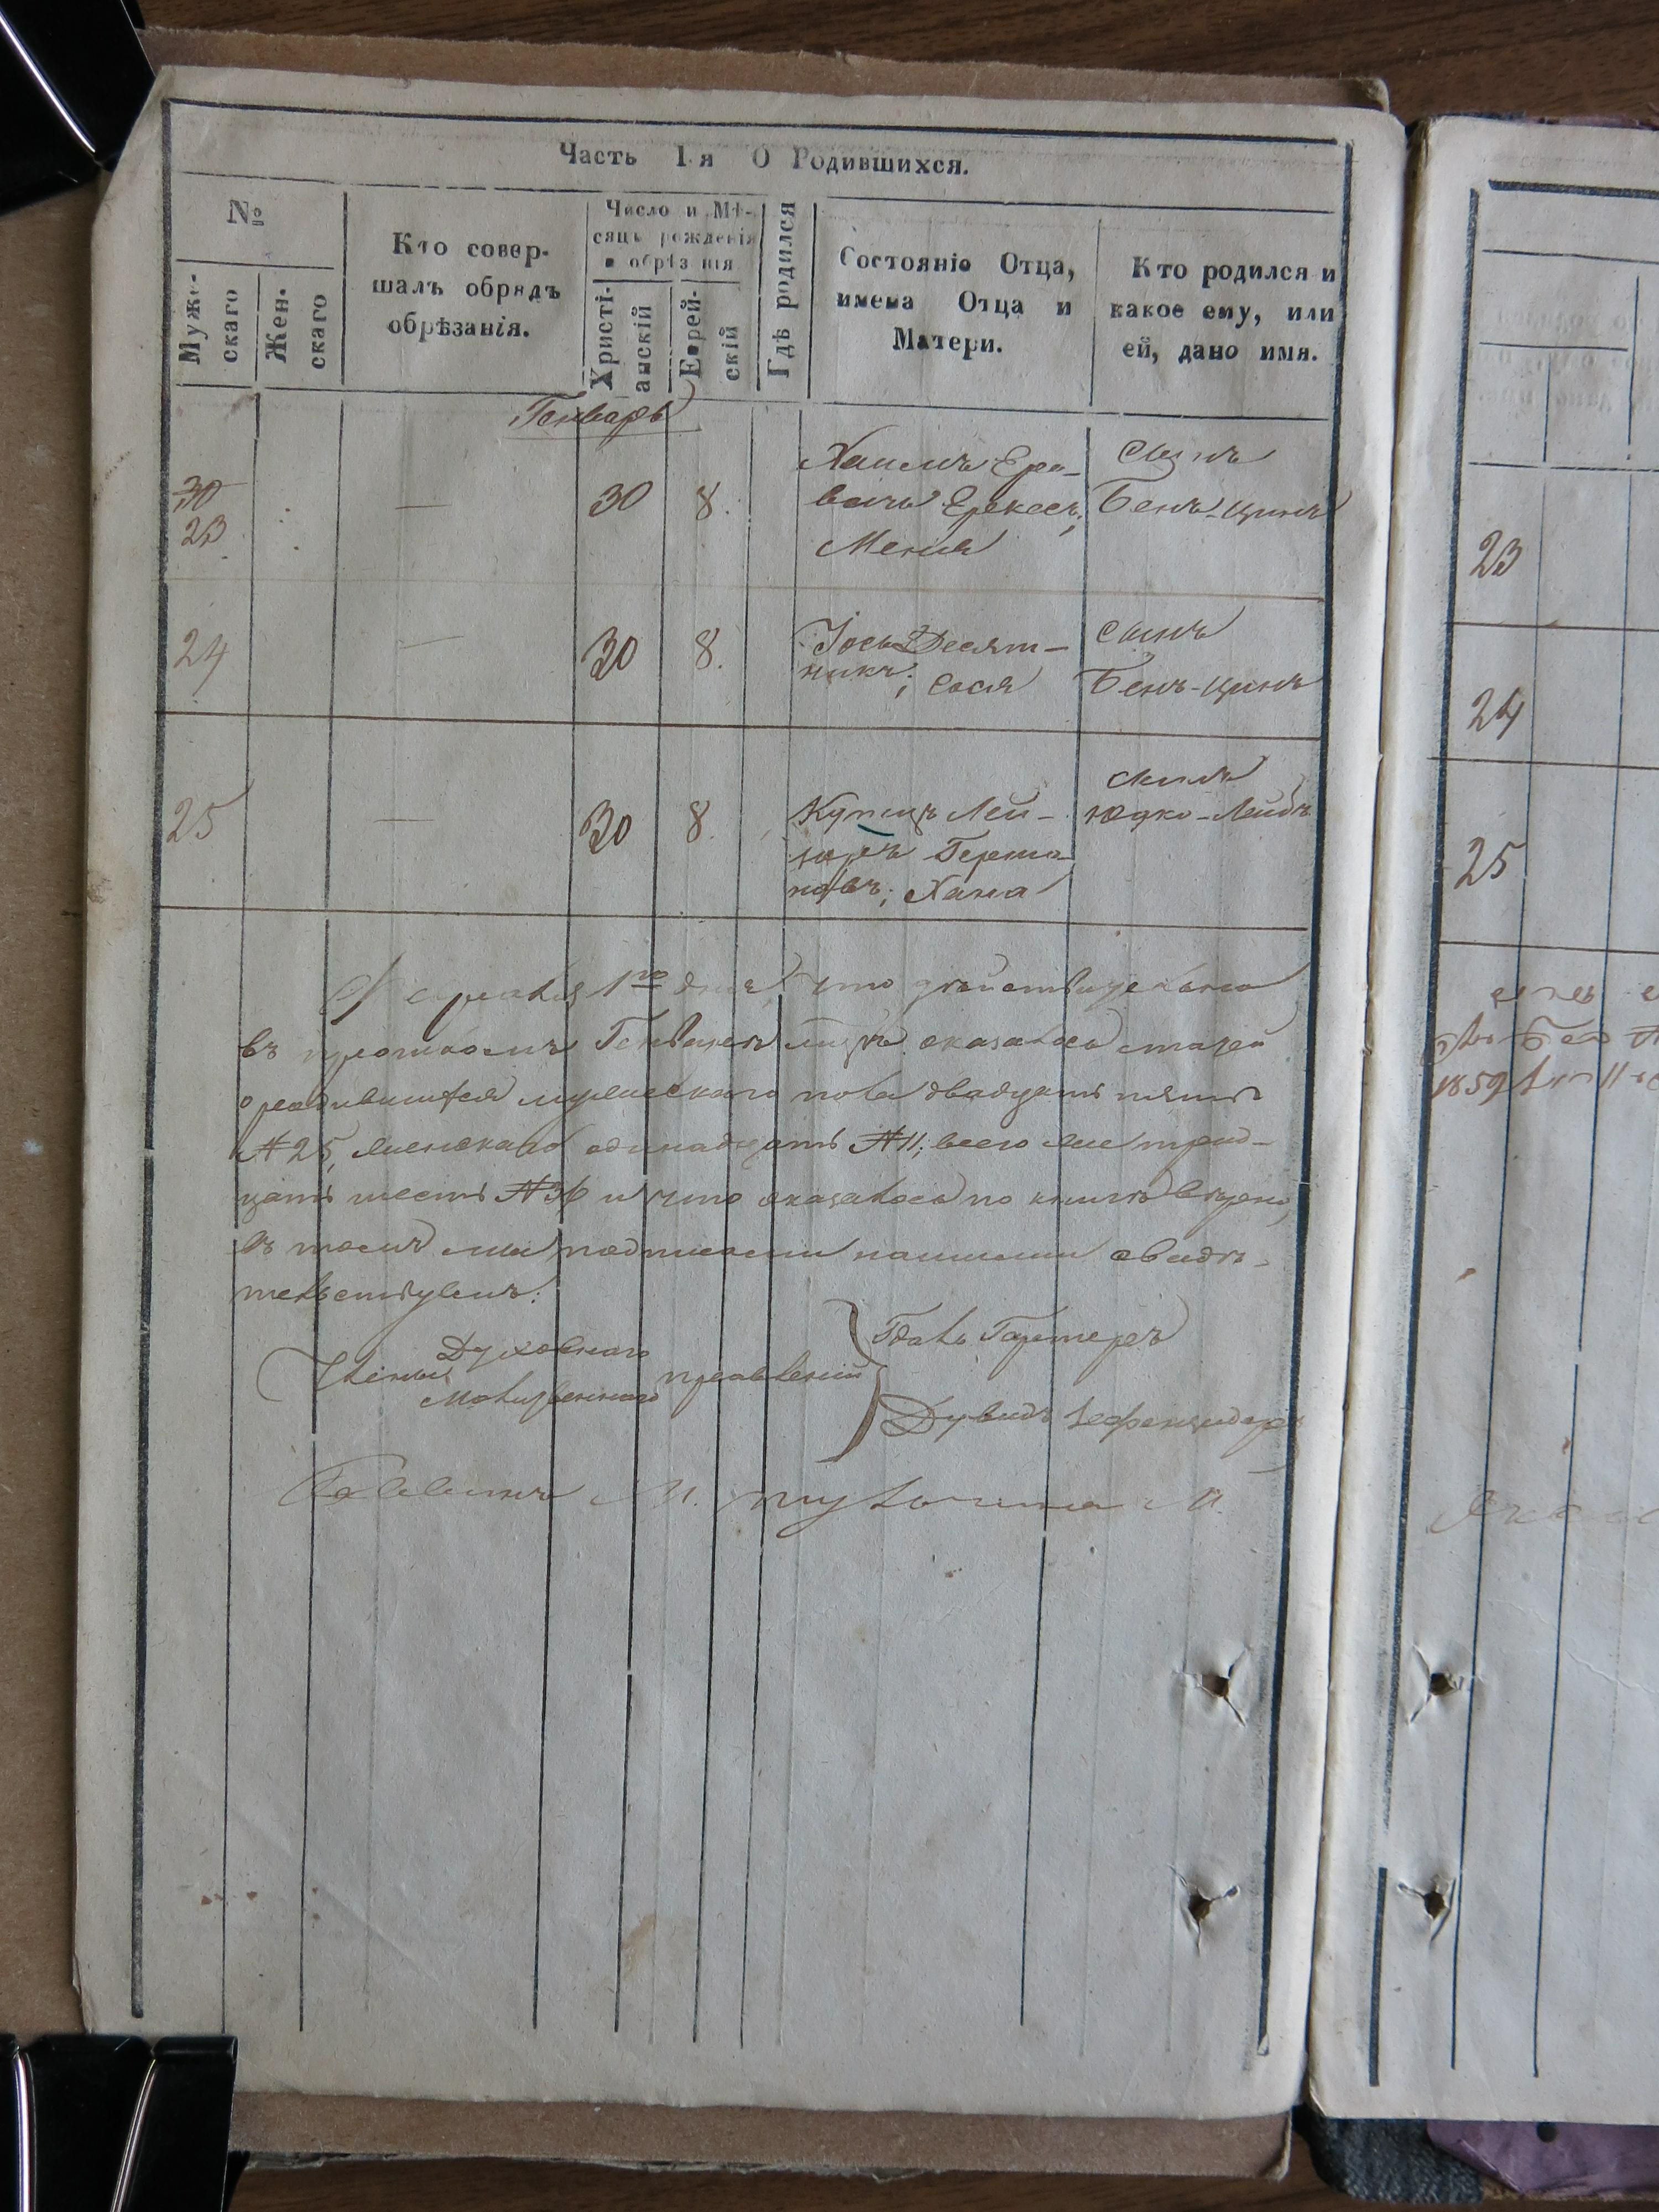 Часть 1-я О Родившихся.
№
Муже-
скаго
Жен-
скаго
Кто совер-
шалъ обрядъ
обрѣзанія.
Число и Мѣ-
сяцъ рожденія
и обрѣзанія
Христі-
анскій
Еврей-
скій
Гдѣ родился
Состояніе Отца,
имена Отца и
Матери.
Кто родился и
какое ему, или
ей, дано имя.
Генварь
30
23
— 30 8.
Хаимъ
Меня
сынъ
Бенъ-Ционъ
24 — 30 8.
Іось Десят-
никъ; Сося
сынъ
Бенъ-Ционъ
25 — 30 8.
Купецъ Лей-
зеръ Герша-
новъ; Хана
сынъ
Юдко-Лейбъ
Февраля 1го дня, что действительно
въ прошломъ Генваре мцѣ оказалось статей
о родившихся мужескаго пола двадцать пять
№ 25, женскаго одинадцать № 11; всего же трид-
цать шесть № 36 и что оказалось по книгѣ вѣрно,
въ томъ мы подписомъ нашимъ свидѣ-
тельствуемъ:
Члены
Духовнаго
Молитвеннаго
правленій
Дувидъ
Раввинъ М.
23
24
25
1859